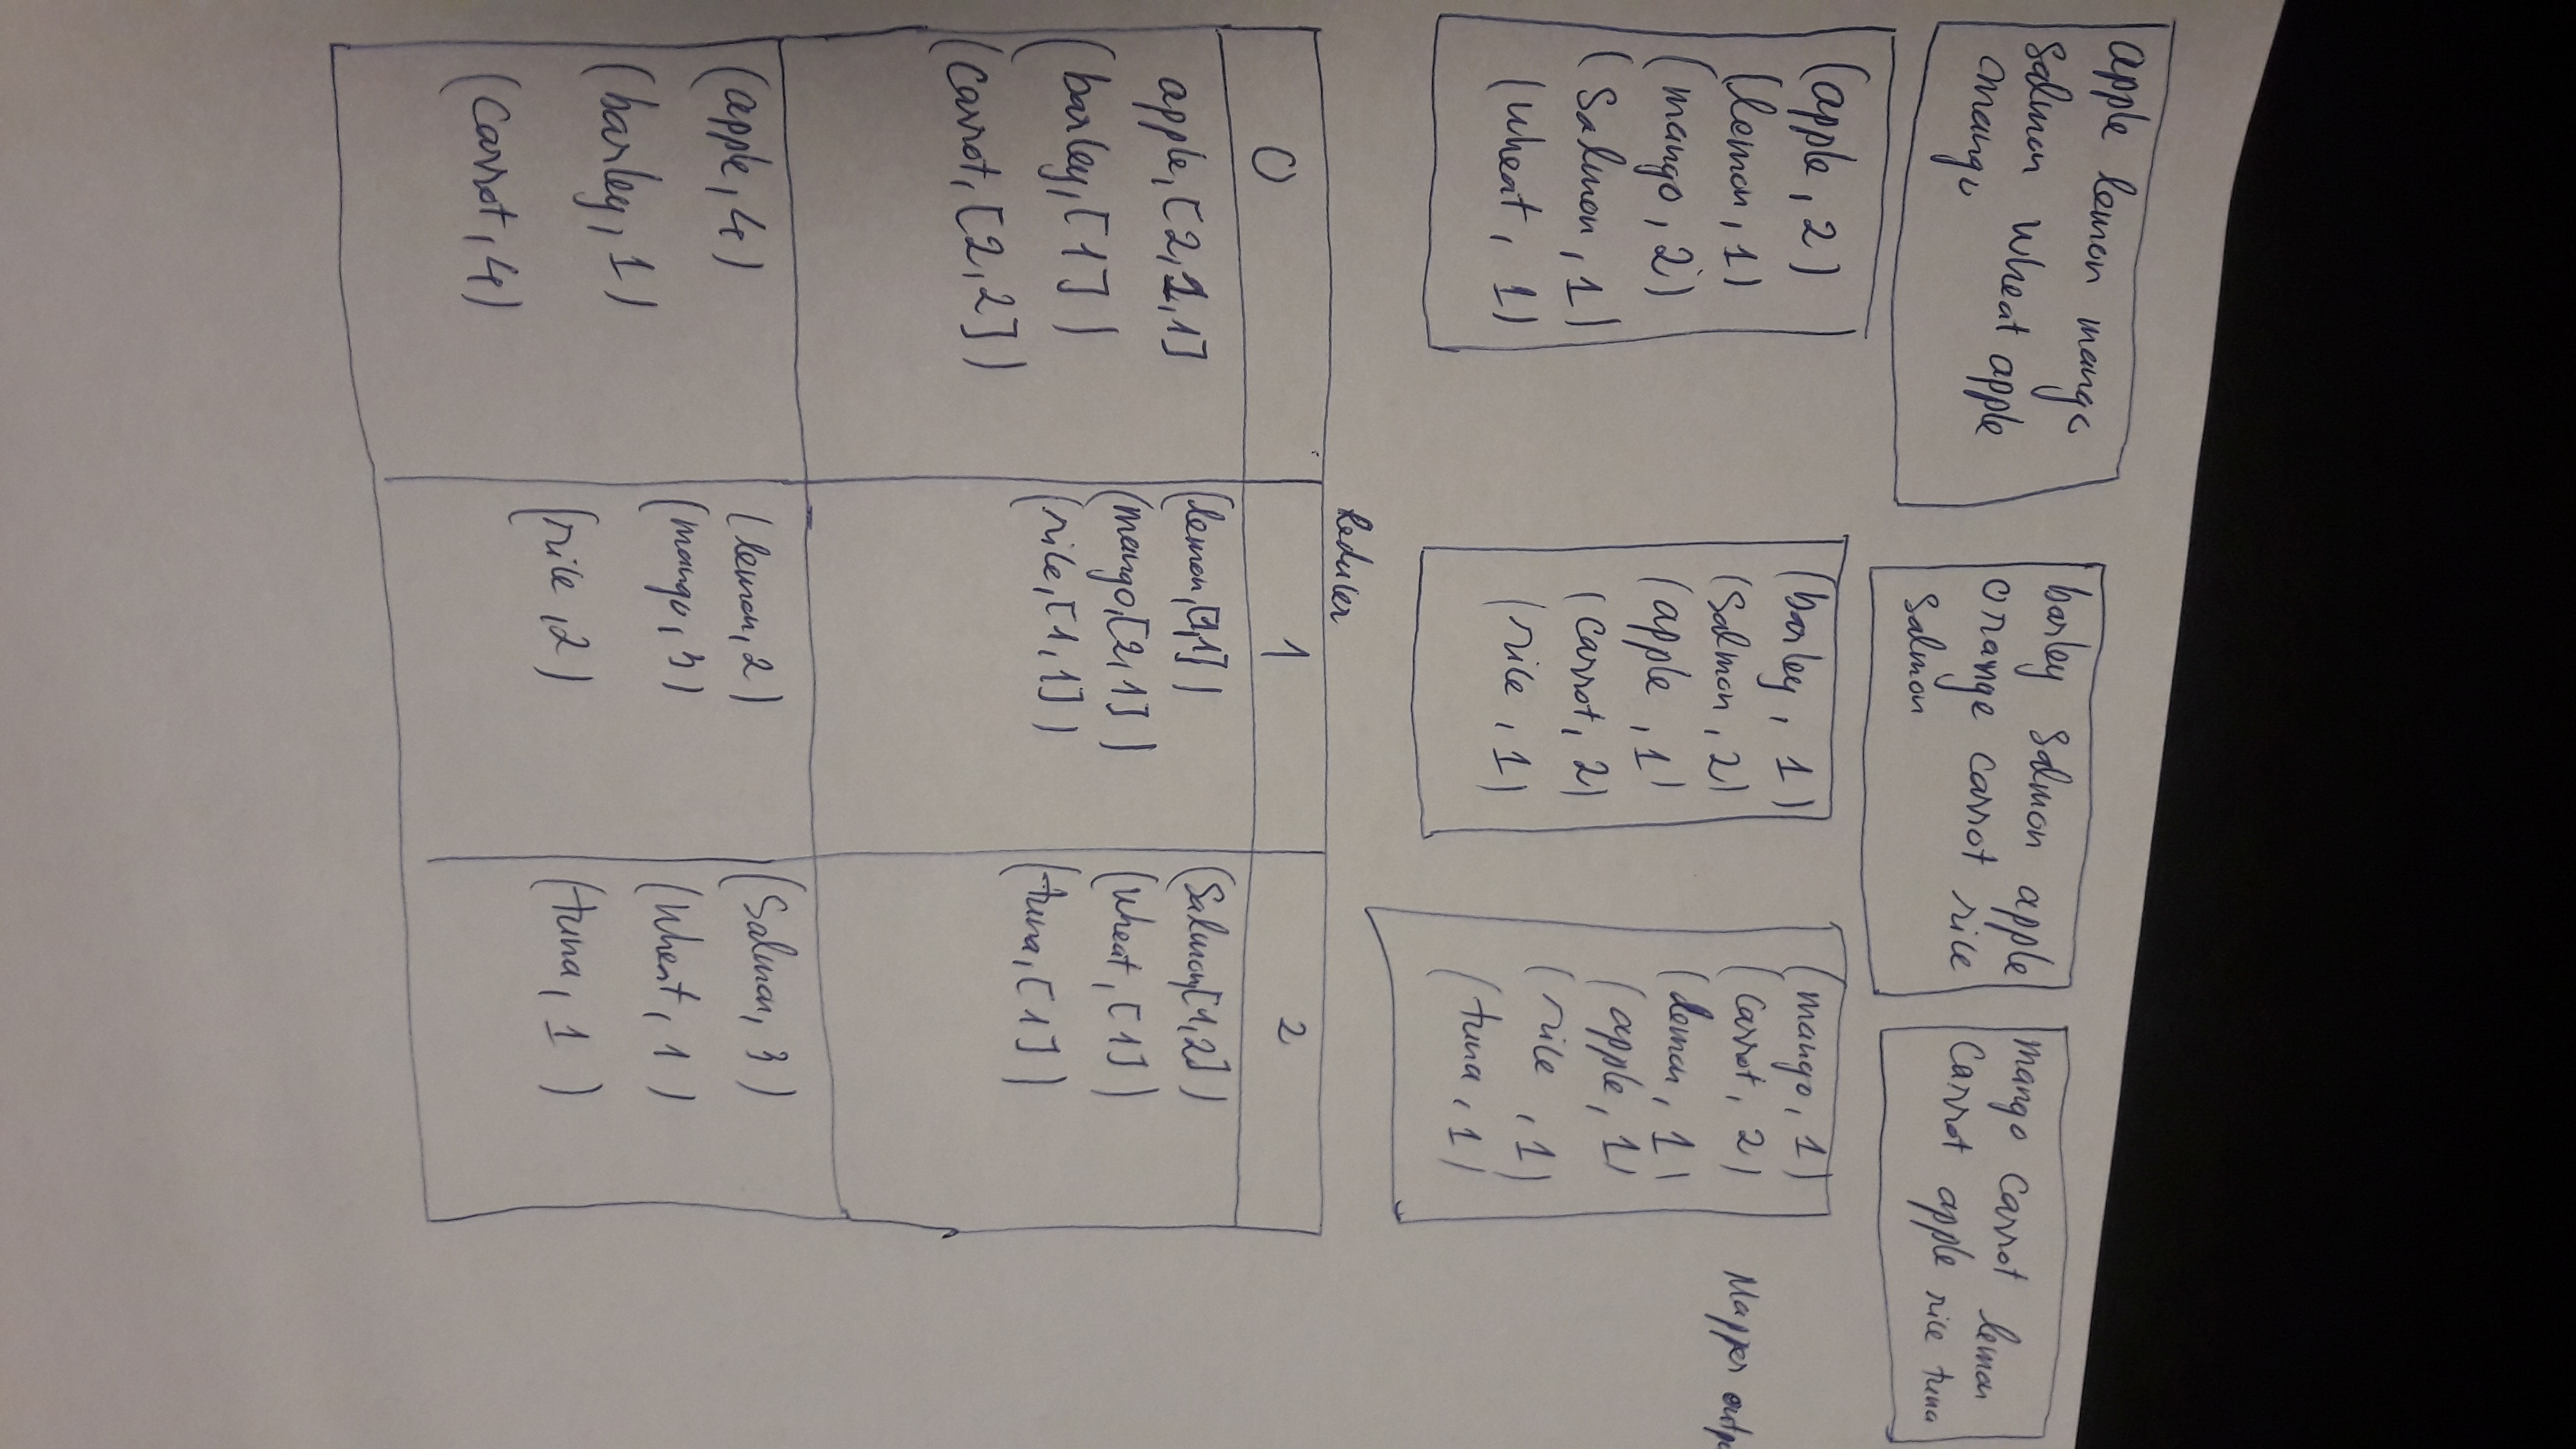 apple lemon mango
Salmon wheat apple
mango
barley Salmon apple
orange carrot rice
Salmon
mango carrot lemon
Carrot apple rice tuna
(apple, 2)
(lemon, 1)
(mango, 2)
(Salmon, 1)
(wheat, 1)
(barley, 1)
(Salmon, 2)
(apple, 1)
(carrot, 2)
(rice, 1)
(mango, 1)
(carrot, 2)
(lemon, 1)
(apple, 1)
(rice, 1)
(tuna, 1)
Mapper outpu
Reducer
0
1
2
apple, [2,1,1]
(barley, [1])
(carrot, [2,2])
(lemon, [1,1])
(mango, [2,1])
(rice, [1,1])
(Salmon, [1,2])
(wheat, [1])
(tuna, [1])
(apple, 4)
(barley, 1)
(carrot, 4)
(lemon, 2)
(mango, 3)
(rice, 2)
(Salmon, 3)
(wheat, 1)
(tuna, 1)